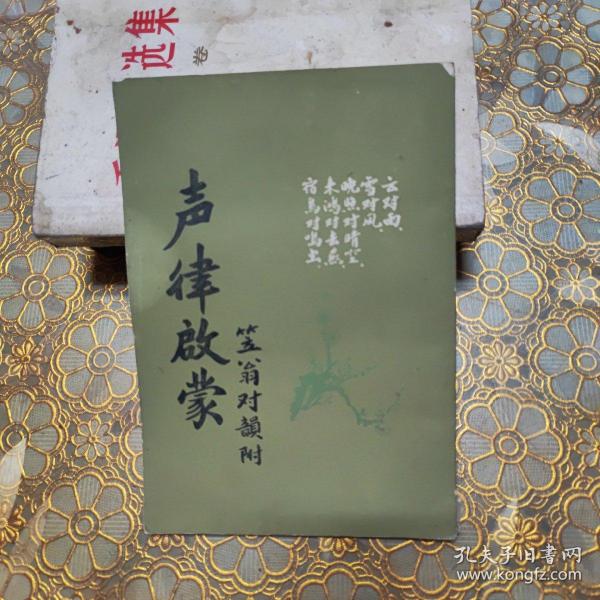 选集
卷
云对雨、
雪对风、
晚照对晴空、
来鸿对去燕、
宿鸟对鸣虫、
声律啟蒙
笠翁对韻附
孔夫子旧书网
www.kongfz.com